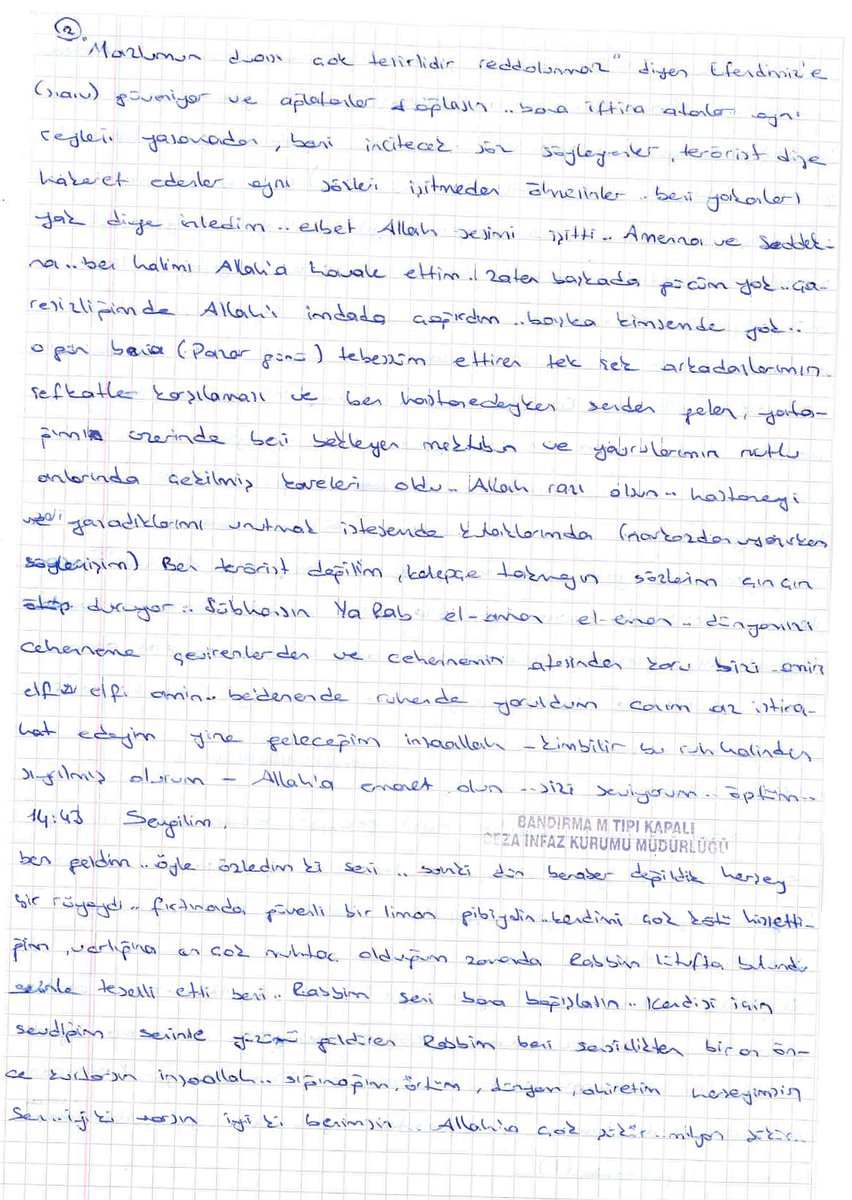 2.
"Mazlumun duası çok tesirlidir reddolunmaz" diyen Efendimiz'e
(s.a.v) güveniyor ve .. bana iftira atanlar aynı
şeyleri yaşamadan, beni incitecek söz söyleyenler, terörist diye
hakaret edenler aynı sözleri işitmeden ölmesinler.. beni yakanları
yak diye inledim.. elbet Allah sesimi işitti.. Amenna ve Saddak-
na.. ben halimi Allah'a havale ettim. Zaten başkada gücüm yok.. ça-
resizliğimde Allah'ı imdada çağırdım.. başka kimsemde yok..
o gün bana (Pazar günü) tebessüm ettiren tek şek arkadaşlarımın
şefkatle karşılaması ve ben hastanedeyken senden gelen, yata-
ğımın üzerinde beni bekleyen mektubun ve yavrularımın mutlu
anlarında çekilmiş kareleri oldu.. Allah razı olsun.. hastaneyi
yaşadıklarımı unutmak istesemde kulaklarımda (narkozdan uyanırken
söyleyişim) Ben terörist değilim, kelepçe takmayın sözlerim çın çın
duruyor.. Sübhansın Ya Rab el-aman el-eman.. dünyamızı
cehenneme çevirenlerden ve cehennemin ateşinden koru bizi amin
elf elfi amin.. bedenende ruhende yoruldum canım az istira-
hat edeyim yine geleceğim inşaallah - kimbilir bu ruh halinden
sıyrılmış olurum - Allah'a emanet olun .. sizi seviyorum.. öptüm..
14:43 Sevgilim,
BANDIRMA M TİPİ KAPALI
CEZA İNFAZ KURUMU MÜDÜRLÜĞÜ
ben geldim.. öyle özledim ki seni.. sanki dün beraber değildik herşey
bir rüyaydı.. fırtınada güvenli bir liman gibiydin.. kendimi çok kötü hissetti-
ğim, varlığına en çok muhtaç olduğum zamanda Rabbim lütufta bulundu
seninle teselli etti beni.. Rabbim seni bana bağışlasın.. Kendisi için
sevdiğim seninle yüzümü güldüren Rabbim beni sensizlikten bir an ön-
ce kurtarsın inşaallah.. sığınağım, örtüm, dünyam, ahiretim herşeyimsin
Sen.. iyiki varsın iyi ki benimsin.. Allah'ım çok şükür.. milyon şükür..